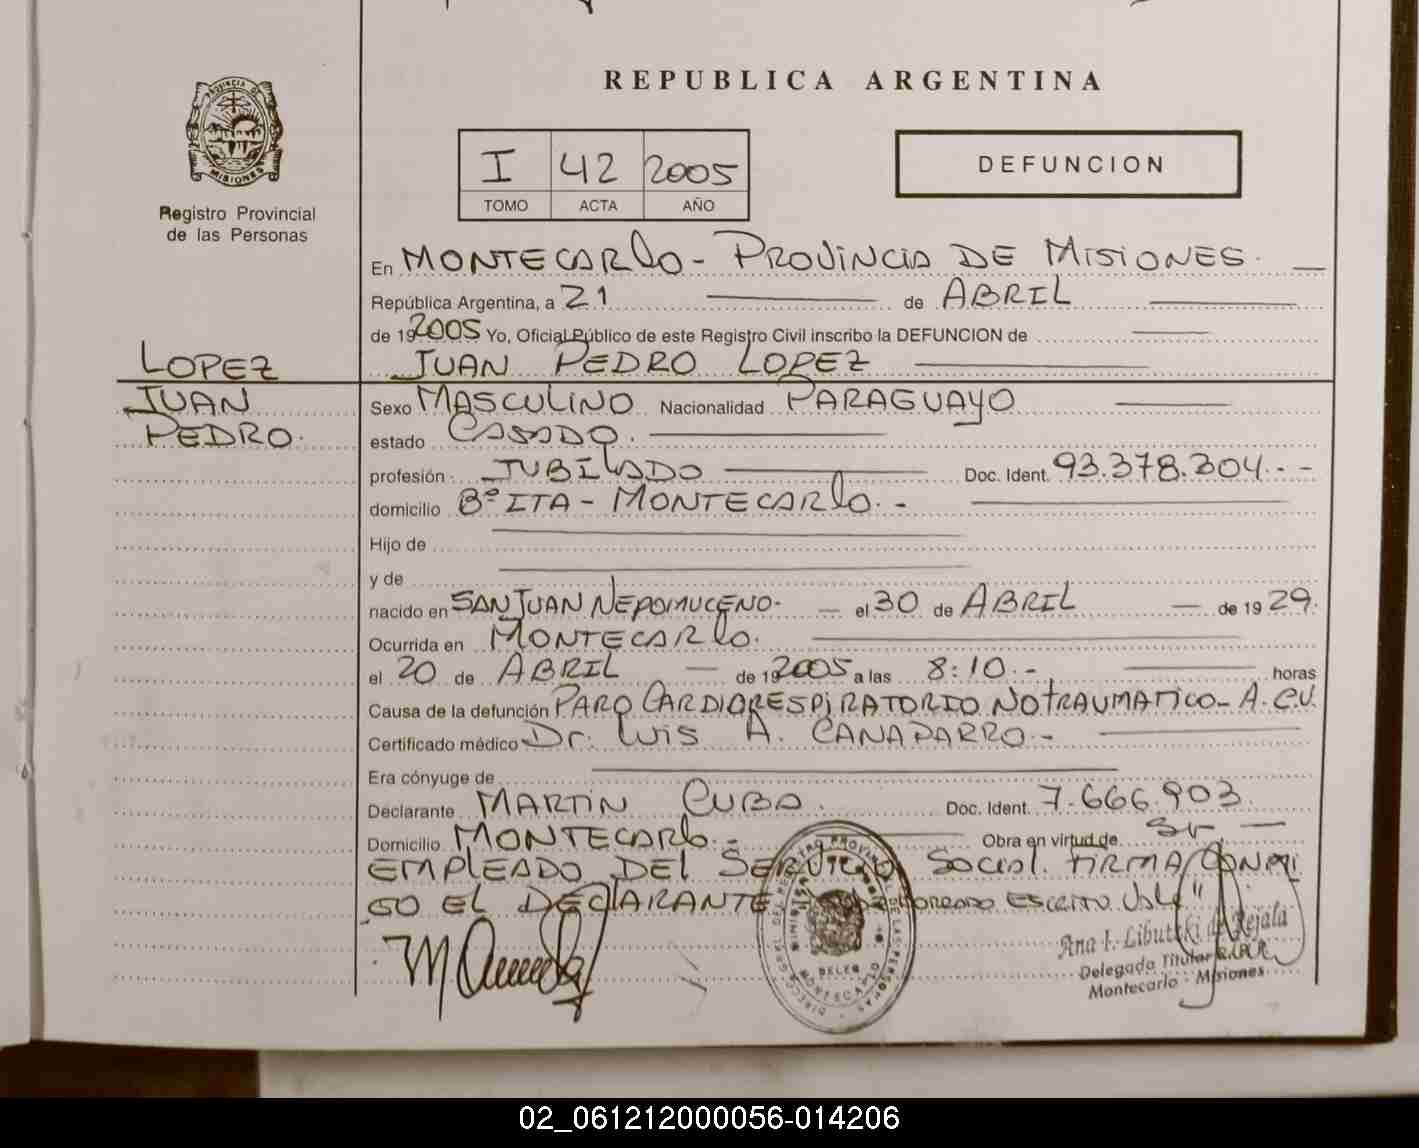 REPUBLICA ARGENTINA
PROVINCIA DE
MISIONES
Registro Provincial
de las Personas
I 42 2005
TOMO ACTA AÑO
DEFUNCION
En MONTECARLO - PROVINCIA DE MISIONES.
República Argentina, a 21 de ABRIL
de 192005 Yo, Oficial Público de este Registro Civil inscribo la DEFUNCION de
LOPEZ
JUAN
PEDRO.
JUAN PEDRO LOPEZ
Sexo MASCULINO Nacionalidad PARAGUAYO
estado CASADO.
profesión JUBILADO Doc. Ident. 93.378.304.--
domicilio Bº ITA - MONTECARLO.-
Hijo de
y de
nacido en SAN JUAN NEPOMUCENO. - el 30 de ABRIL - de 1929.
Ocurrida en MONTECARLO.
el 20 de ABRIL - de 192005 a las 8:10.- horas
Causa de la defunción PARO CARDIORESPIRATORIO NO TRAUMATICO - A.C.V.
Certificado médico Dr. LUIS A. CANAPARRO.-
Era cónyuge de
Declarante MARTIN CUBA. Doc. Ident. 7.666.903.
Domicilio MONTECARLO.- Obra en virtud de Sr -
EMPLEADO DEL SERVICIO SOCIAL. FIRMA CONMI
GO EL DECLARANTE ESCRITO Vale"
Ana I. de Rejala
Delegada Titular
Montecarlo - Misiones
MONTECARLO
02_061212000056-014206